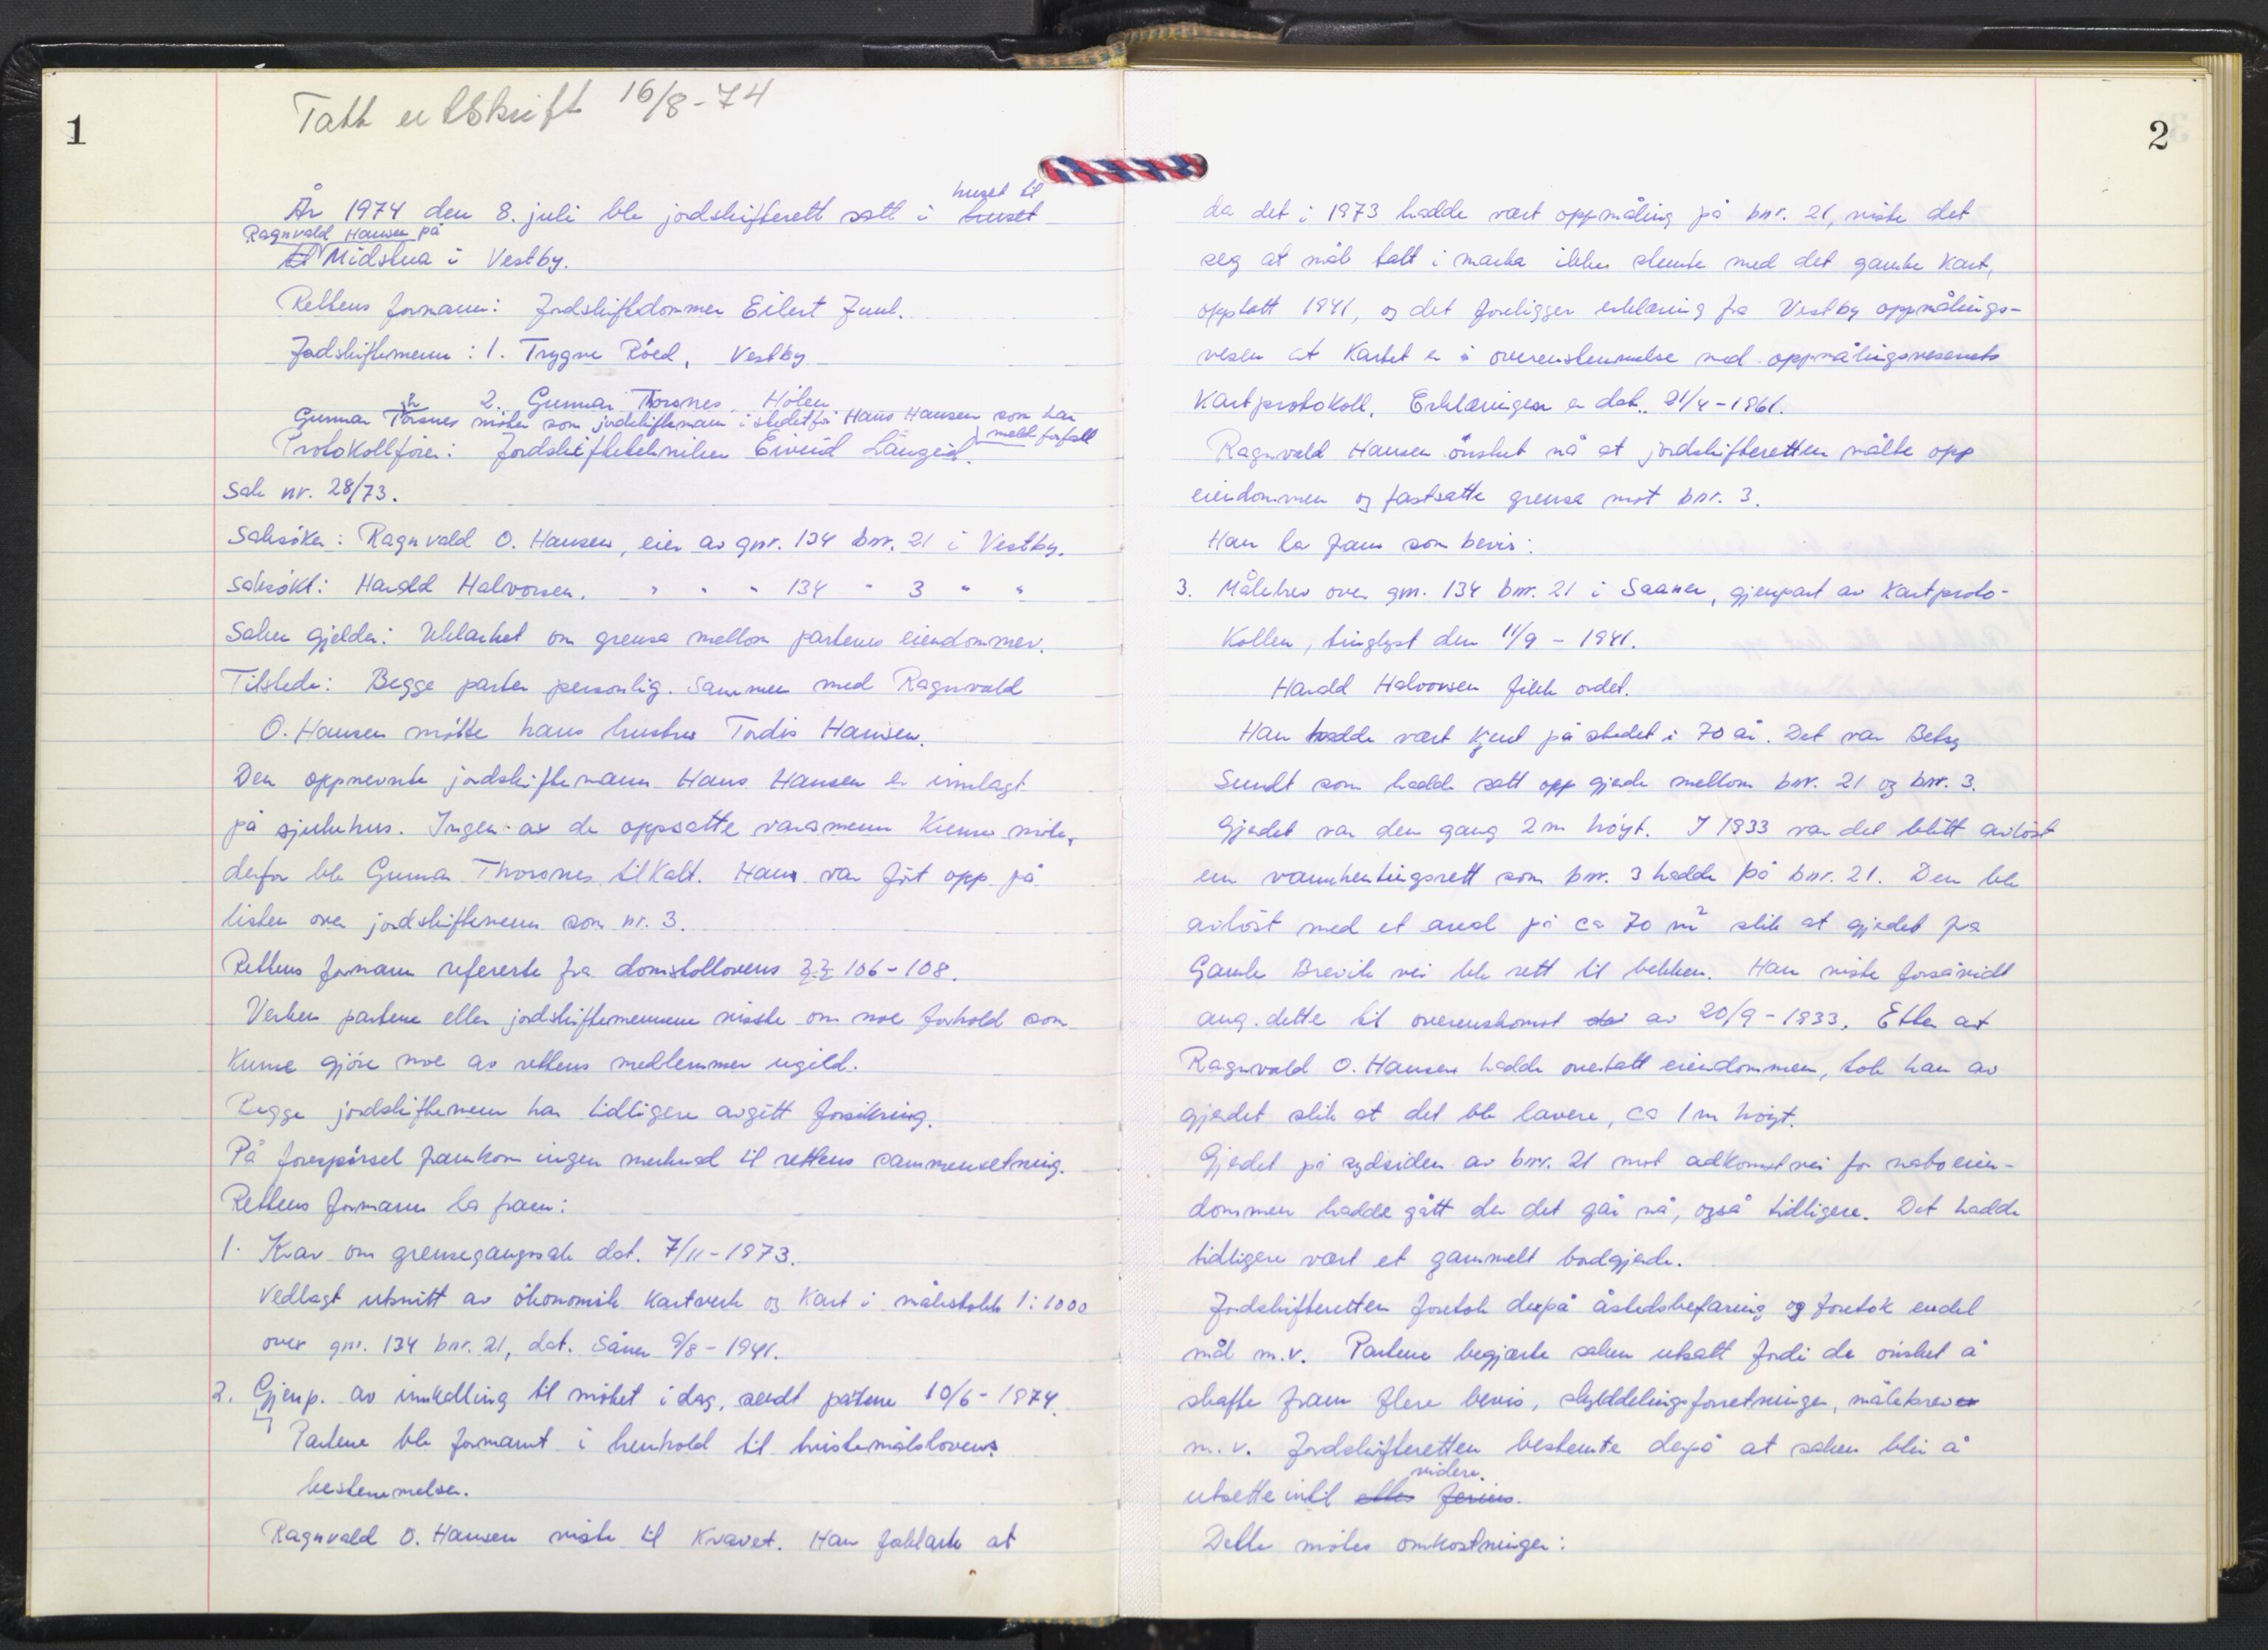 1
Tatt utskrift 16/8-74
huset til
År 1974 den 8. juli ble jordskifterett satt i huset
Ragnvald Hansen på
til Midstua i Vestby.
Rettens formann: Jordskiftedommer Eilert Juul.
Jordskiftemenn: 1. Trygve Röed, Vestby
2. Gunnar Thorsnes, Hölen
Gunnar Thorsnes möter som jordskiftemann i stedet for Hans Hansen som har
meldt forfall
Protokollförer: Jordskiftetekniker Eivind Längeid.
Sak nr. 28/73.
Saksöker: Ragnvald O. Hansen, eier av gnr. 134 bnr. 21 i Vestby.
Saksökt: Harald Halvorsen, " " " 134 " 3 " "
Saken gjelder: Uklarhet om grensa mellom partenes eiendommer.
Tilstede: Begge parter personlig. Sammen med Ragnvald
O. Hansen mötte hans hustru Tordis Hansen.
Den oppnevnte jordskiftemann Hans Hansen er innlagt
på sjukehus. Ingen av de oppsatte varamenn kunne möte,
derfor ble Gunnar Thorsnes tilkalt. Han var fört opp på
listen over jordskiftemenn som nr. 3.
Rettens formann refererte fra domstollovens §§ 106-108.
Verken partene eller jordskiftemennene visste om noe forhold som
kunne gjöre noe av rettens medlemmer ugild.
Begge jordskiftemenn har tidligere avgitt forsikring.
På forespörsel framkom ingen merknad til rettens sammensetning.
Rettens formann la fram:
1. Krav om grensegangssak dat. 7/11-1973.
Vedlagt utsnitt av ökonomisk kartverk og kart i målestokk 1:1000
over gnr. 134 bnr. 21, dat. Såner 9/8-1941.
2. Gjenp. av innkalling til mötet i dag, sendt partene 10/6-1974.
Partene ble formant i henhold til tvistemålslovens
bestemmelser.
Ragnvald O. Hansen viste til kravet. Han forklarte at
2
da det i 1973 hadde vært oppmåling på bnr. 21, viste det
seg at mål tatt i marka ikke stemte med det gamle kart,
opptatt 1941, og det foreligger erklæring fra Vestby oppmålings-
vesen at kartet er i overenstemmelse med oppmålingsvesenets
kartprotokoll. Erklæringen er dat. 21/4-1961.
Ragnvald Hansen önsket nå at jordskifteretten målte opp
eiendommen og fastsatte grensa mot bnr. 3.
Han la fram som bevis:
3. Målebrev over gnr. 134 bnr. 21 i Saaner, gjenpart av kartproto-
kollen, tinglyst den 11/9-1941.
Harald Halvorsen fikk ordet.
Han hadde vært kjent på stedet i 70 år. Det var Betsy
Sundt som hadde satt opp gjerde mellom bnr. 21 og bnr. 3.
Gjerdet var den gang 2 m höyt. I 1933 var det blitt avlöst
en vannhentingsrett som bnr. 3 hadde på bnr. 21. Den ble
avlöst med et areal på ca 70 m² slik at gjerdet fra
Gamle Brevik vei ble rett til bekken. Han viste forsåvidt
ang. dette til overenskomst av 20/9-1933. Etter at
Ragnvald O. Hansen hadde overtatt eiendommen, tok han av
gjerdet slik at det ble lavere, ca 1 m höyt.
Gjerdet på sydsiden av bnr. 21 mot adkomstvei for naboeien-
dommen hadde gått der det går nå, også tidligere. Det hadde
tidligere vært et gammelt bordgjerde.
Jordskifteretten foretok derpå åstedsbefaring og foretok endel
mål m.v. Partene begjærte saken utsatt fordi de önsket å
skaffe fram flere bevis, skylddelingsforretninger, målebrev
m.v. Jordskifteretten bestemte derpå at saken blir å
videre.
utsette inntil etter ferien.
Dette mötes omkostninger: